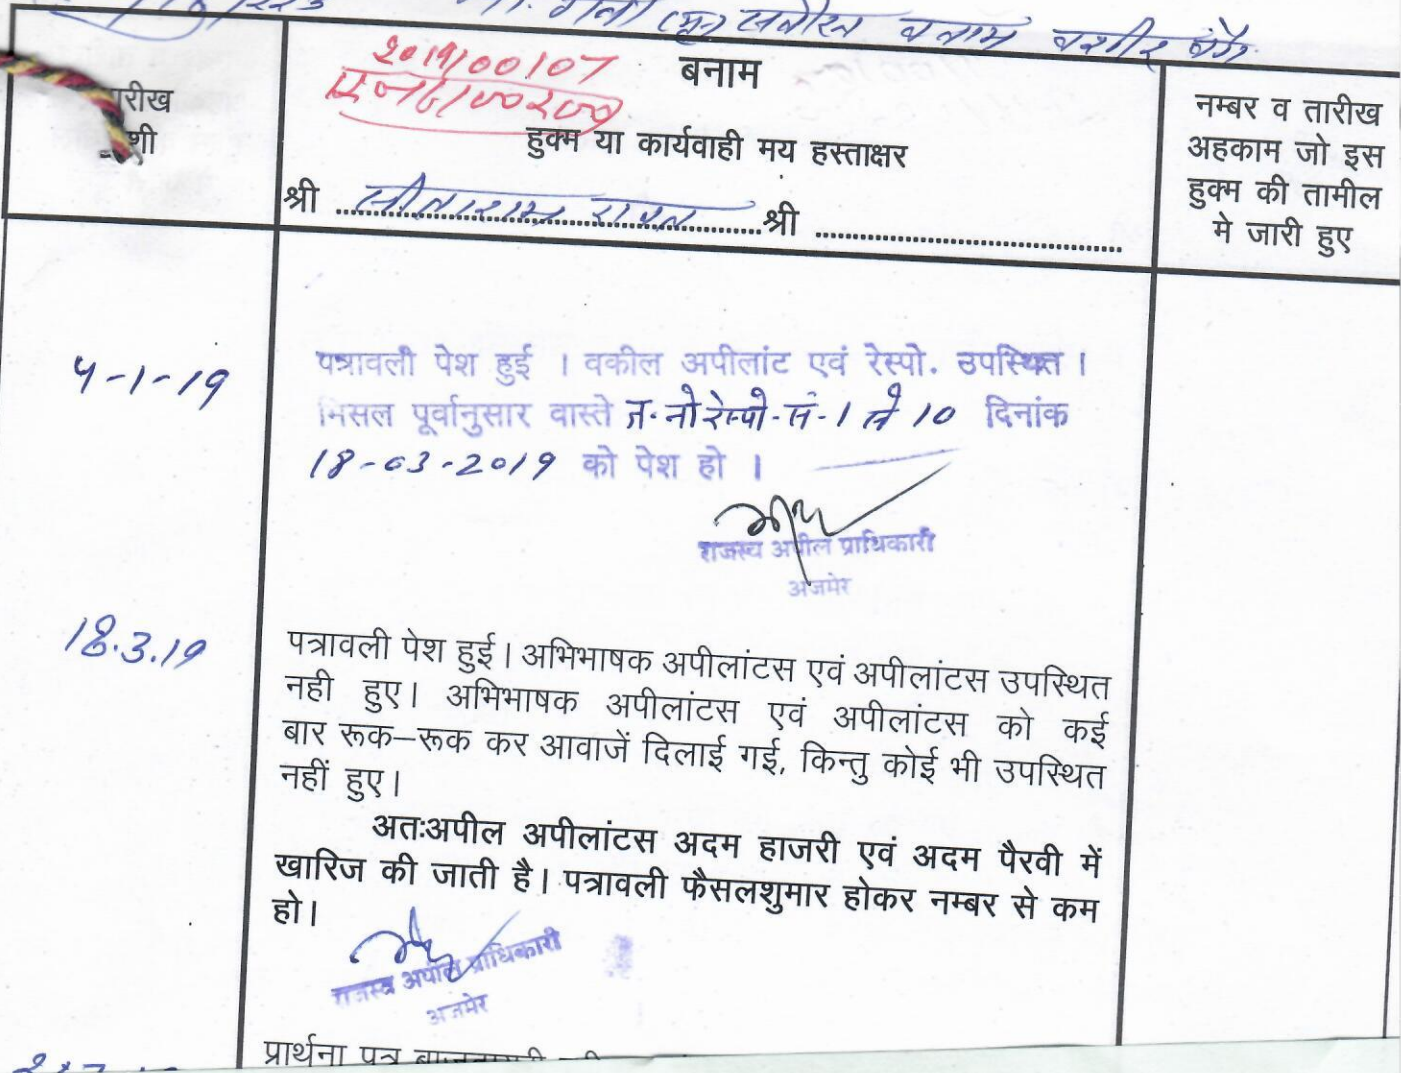 बनाम
2019/00107
तारीख
पेशी
बनाम
हुक्म या कार्यवाही मय हस्ताक्षर
श्री सीताराम रावत श्री
नम्बर व तारीख
अहकाम जो इस
हुक्म की तामील
मे जारी हुए
4-1-19
पत्रावली पेश हुई । वकील अपीलांट एवं रेस्पो. उपस्थित ।
मिसल पूर्वानुसार वास्ते त. नो रेस्पो. सं. 1 से 10 दिनांक
18-03-2019 को पेश हो ।
राजस्व अपील प्राधिकारी
अजमेर
18.3.19
पत्रावली पेश हुई। अभिभाषक अपीलांटस एवं अपीलांटस उपस्थित
नही हुए। अभिभाषक अपीलांटस एवं अपीलांटस को कई
बार रूक–रूक कर आवाजें दिलाई गई, किन्तु कोई भी उपस्थित
नहीं हुए।
अतःअपील अपीलांटस अदम हाजरी एवं अदम पैरवी में
खारिज की जाती है। पत्रावली फैसलशुमार होकर नम्बर से कम
हो।
राजस्व अपील प्राधिकारी
अजमेर
प्रार्थना पत्र